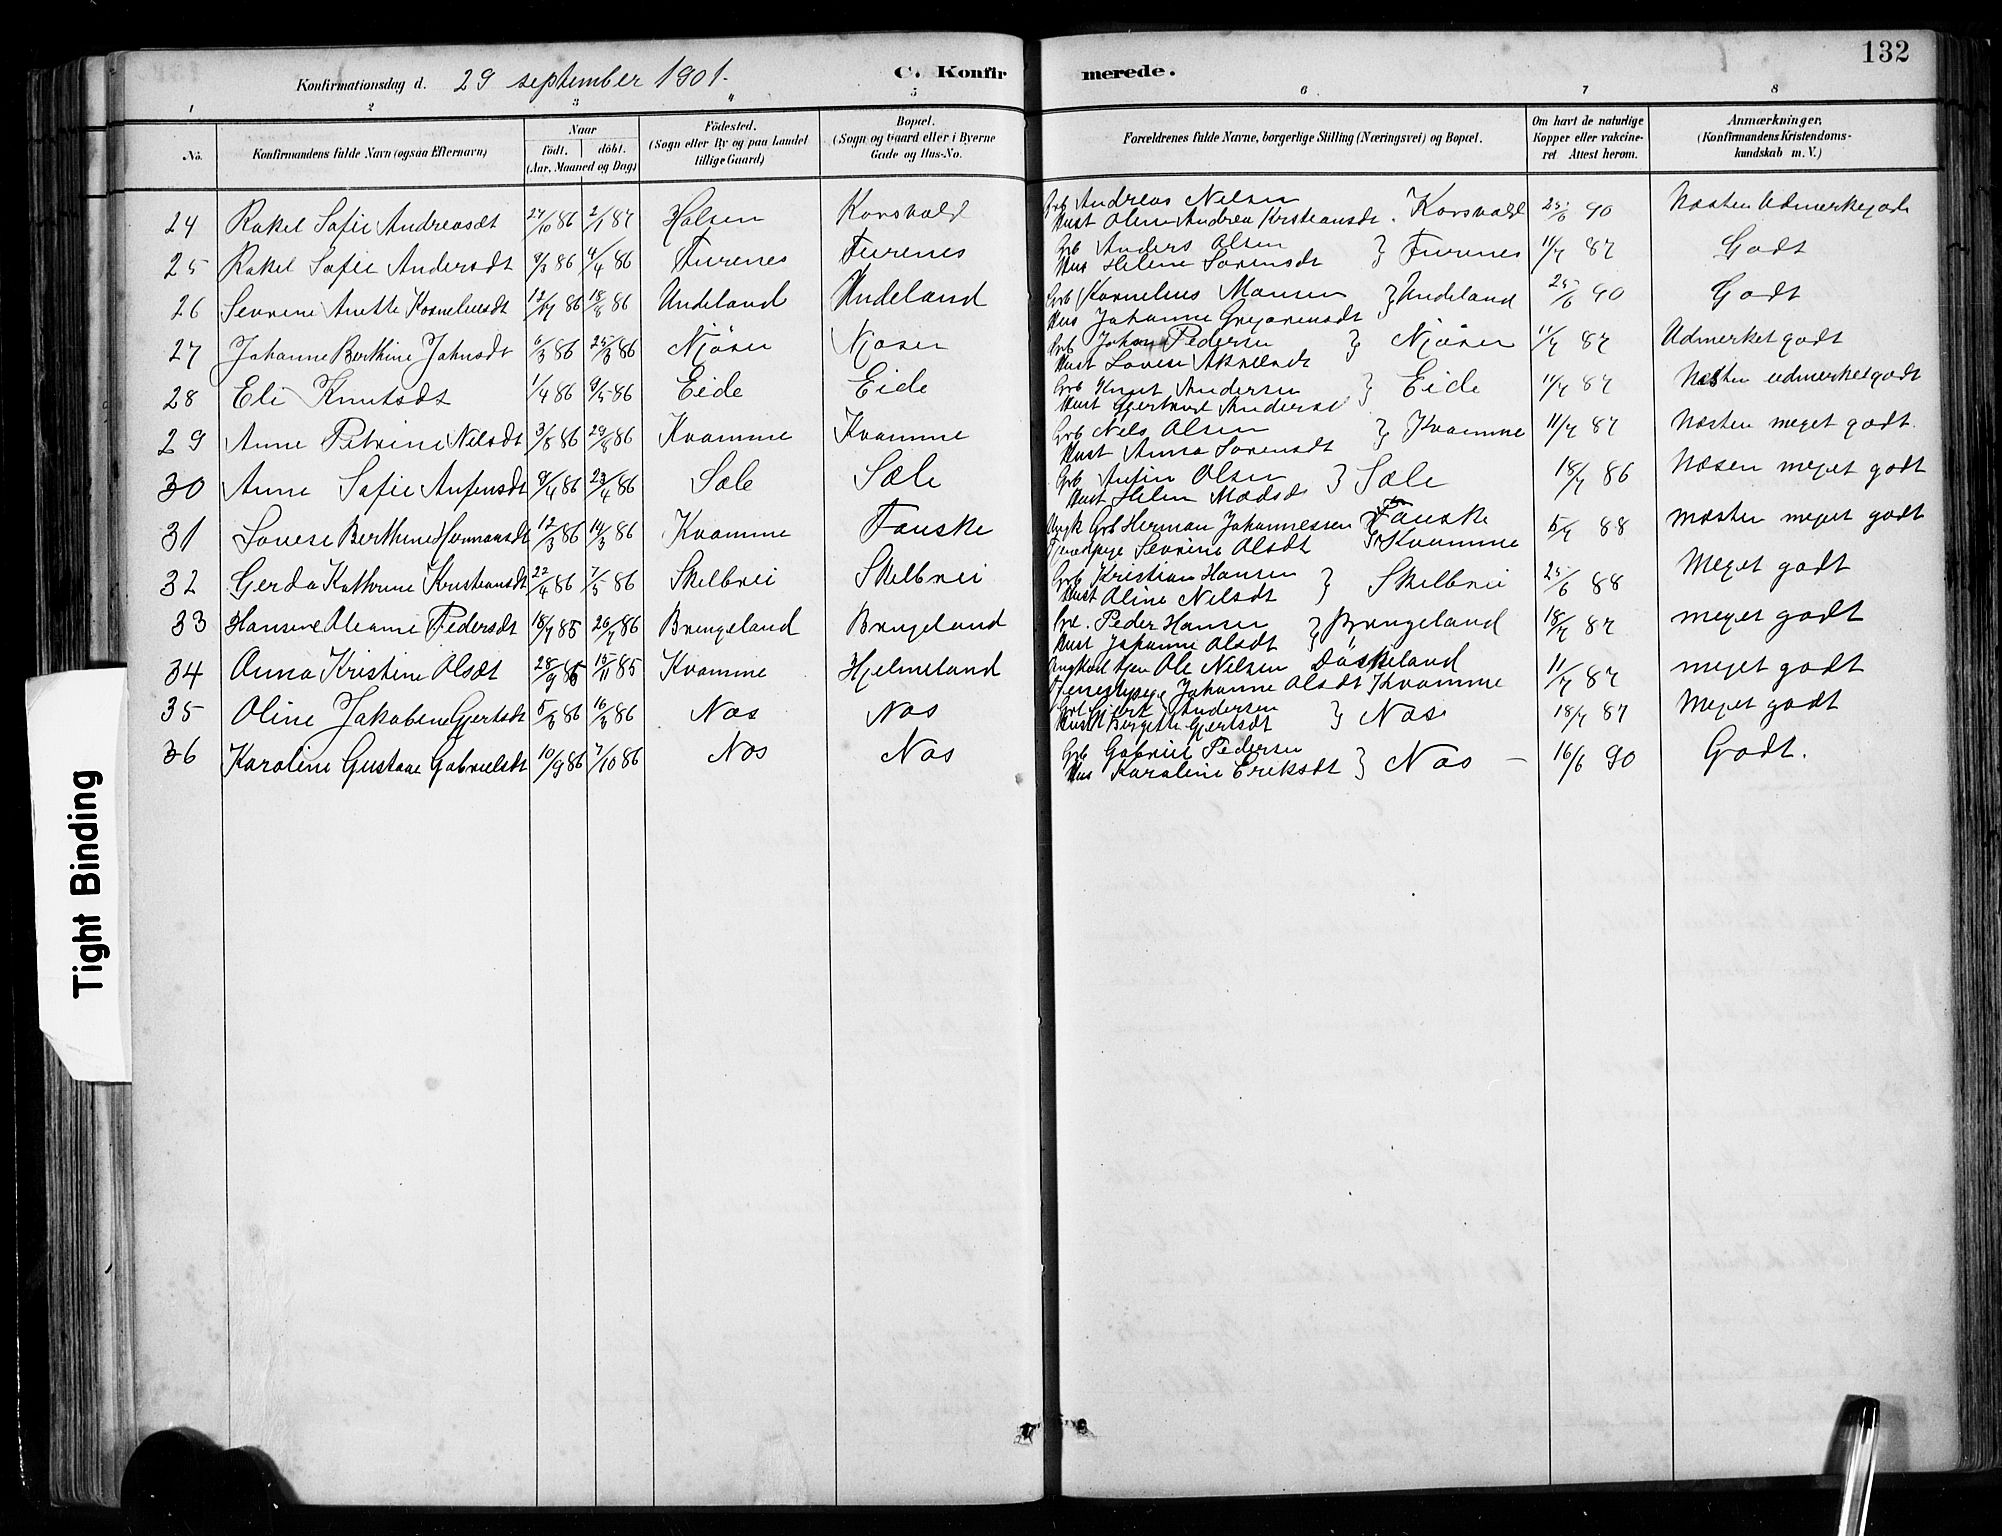 132
Konfirmationsdag d. 29 september 1901. C. Konfirmerede.
1 2 3 4 5 6 7 8
No. Konfirmandens fulde Navn (ogsaa Efternavn) Naar født. døbt. (Aar, Maaned og Dag) Fødested. (Sogn eller By og paa Landet tillige Gaard) Bopæl. (Sogn og Gaard eller i Byerne Gade og Hus-No. Forældrenes fulde Navne, borgerlige Stilling (Næringsvei) og Bopæl. Om havt de naturlige Kopper eller vakcineret Attest herom. Anmærkninger, (Konfirmandens Kristendomskundskab m. V.)
24 Rakel Sofie Andreasdt 27/10 86 2/1 87 Halsen Korsvold Grb Andreas Nilsen Hust Oline Andrea Kristiansdt. Korsvold 25/6 90 Næsten Udmerketgodt
25 Rakel Sofie Andersdt 9/3 86 4/4 86 Furenes Furenes Grb Anders Olsen Hus Helene Sørensdt } Furenes 11/7 87 Godt
26 Sevrine Anette Korneliusdt 12/7 86 18/8 86 Undeland Undeland Grb Kornelius Monsen Hus Johanne Gregoriusdt } Undeland 25/6 90 Godt
27 Johanne Berthine Johnsdt 6/3 86 25/3 86 Njøsen Njøsen Grb Johan Pedersen Hust Lovise Akselsdt } Njøsen 11/7 87 Udmerket godt
28 Eli Knutsdt 1/4 86 9/5 86 Eide Eide Grb Knut Andersen Hust Gjertrud Andersd } Eide 11/7 87 Næsten udmerketgodt
29 Anne Petrine Nilsdt 3/8 86 29/8 86 Kvamme Kvamme Grb Nils Olsen Hust Anna Sørensdt } Kvamme 11/7 87 Næsten meget godt.
30 Anne Sofie Anfinsdt 9/4 86 23/4 86 Sæle Sæle Grb Anfin Olsen Hust Helen Madsd } Sæle 18/7 86 Næsen meget godt
31 Lovise Berthine Hermansdt 12/3 86 14/3 86 Kvamme Fauske Ungk Grb Herman Johannessen Fauske Tjenestpige Sevrine Olsdt Kvamme 5/7 88 Næsten meget godt
32 Gerda Kathrine Kristiansdt 22/4 86 7/5 86 Skelbrei Skelbrei Grb Kristian Hansen Hust Oline Nilsdt } Skelbrei 25/6 88 Meget godt
33 Hansine Oleanne Pedersdt 18/7 85 26/7 86 Bringeland Bringeland Peder Hansen Hust Johanne Olsdt } Bringeland 18/7 87 meget godt
34 Anna Kristine Olsdt 28/9 85 15/11 85 Kvamme Hjelmeland Ungkarl tjen Ole Nilsen Døskeland Tjenestepige Johanne Olsdt Kvamme 11/7 87 meget godt
35 Oline Jakobine Gjertsdt 5/3 86 16/3 86 Nas Nas Grb Gjert Andersen Hust Bergitte Gjertsdt } Nas 18/7 87 Meget godt
36 Karoline Gustave Gabrielsdt 10/9 86 7/10 86 Nas Nas Grb Gabriel Pedersen Hus Karoline Eriksdt } Nas – 16/6 90 Godt.
Tight Binding